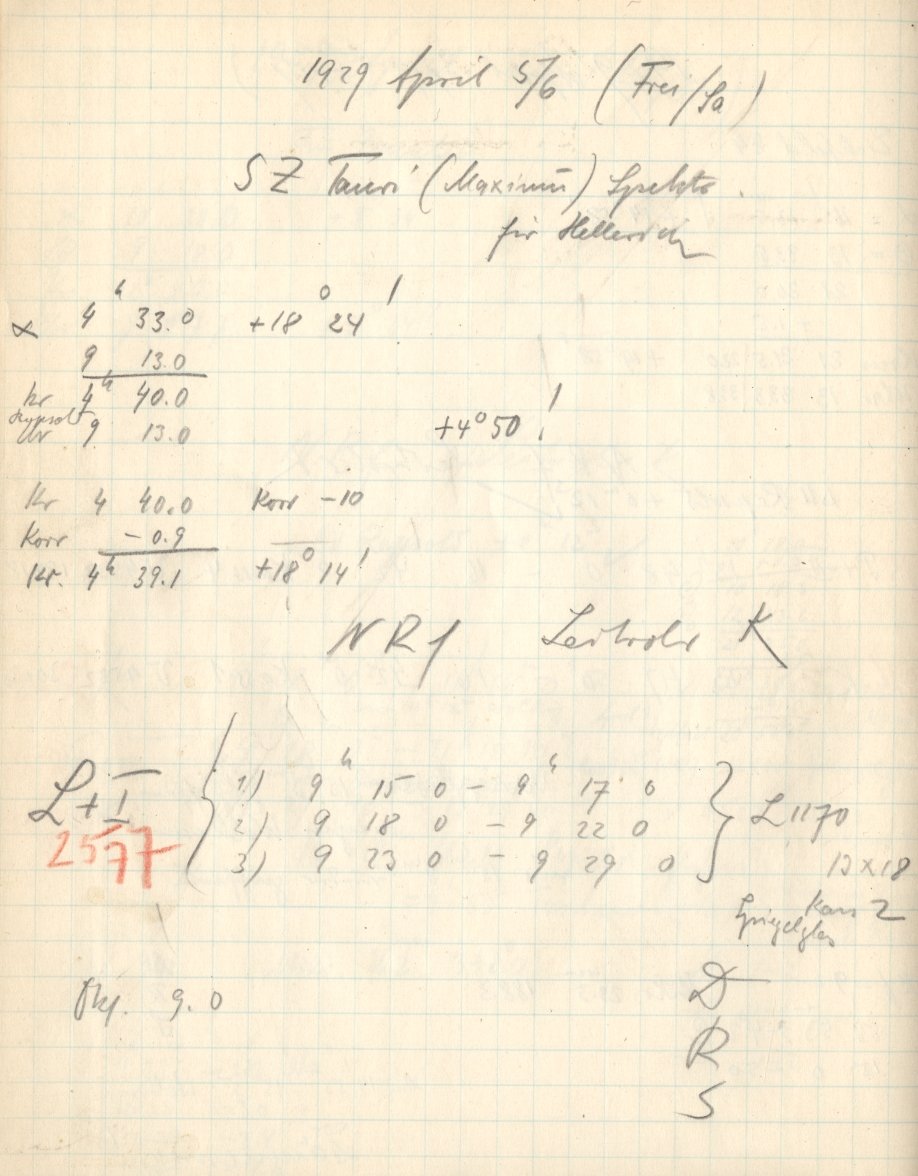 1929 April 5/6 (Frei/Sa)
SZ Tauri (Maximum) Spektr.
für Hellerich
α 4ʰ 33.0 +18° 24'
9 13.0
Kr 4ʰ 40.0
Uhr 9 13.0 +4° 50'
Kr 4 40.0 Korr -10
Korr -0.9
Kr. 4ʰ 39.1 +18° 14'
NR 1 Leitrohr K
L+I 1) 9ʰ 15 0 - 9ʰ 17 0
2577 2) 9 18 0 - 9 22 0 L 1170
3) 9 23 0 - 9 29 0 13x18
Kass 2
Spiegelglas
9.0
D
R
S